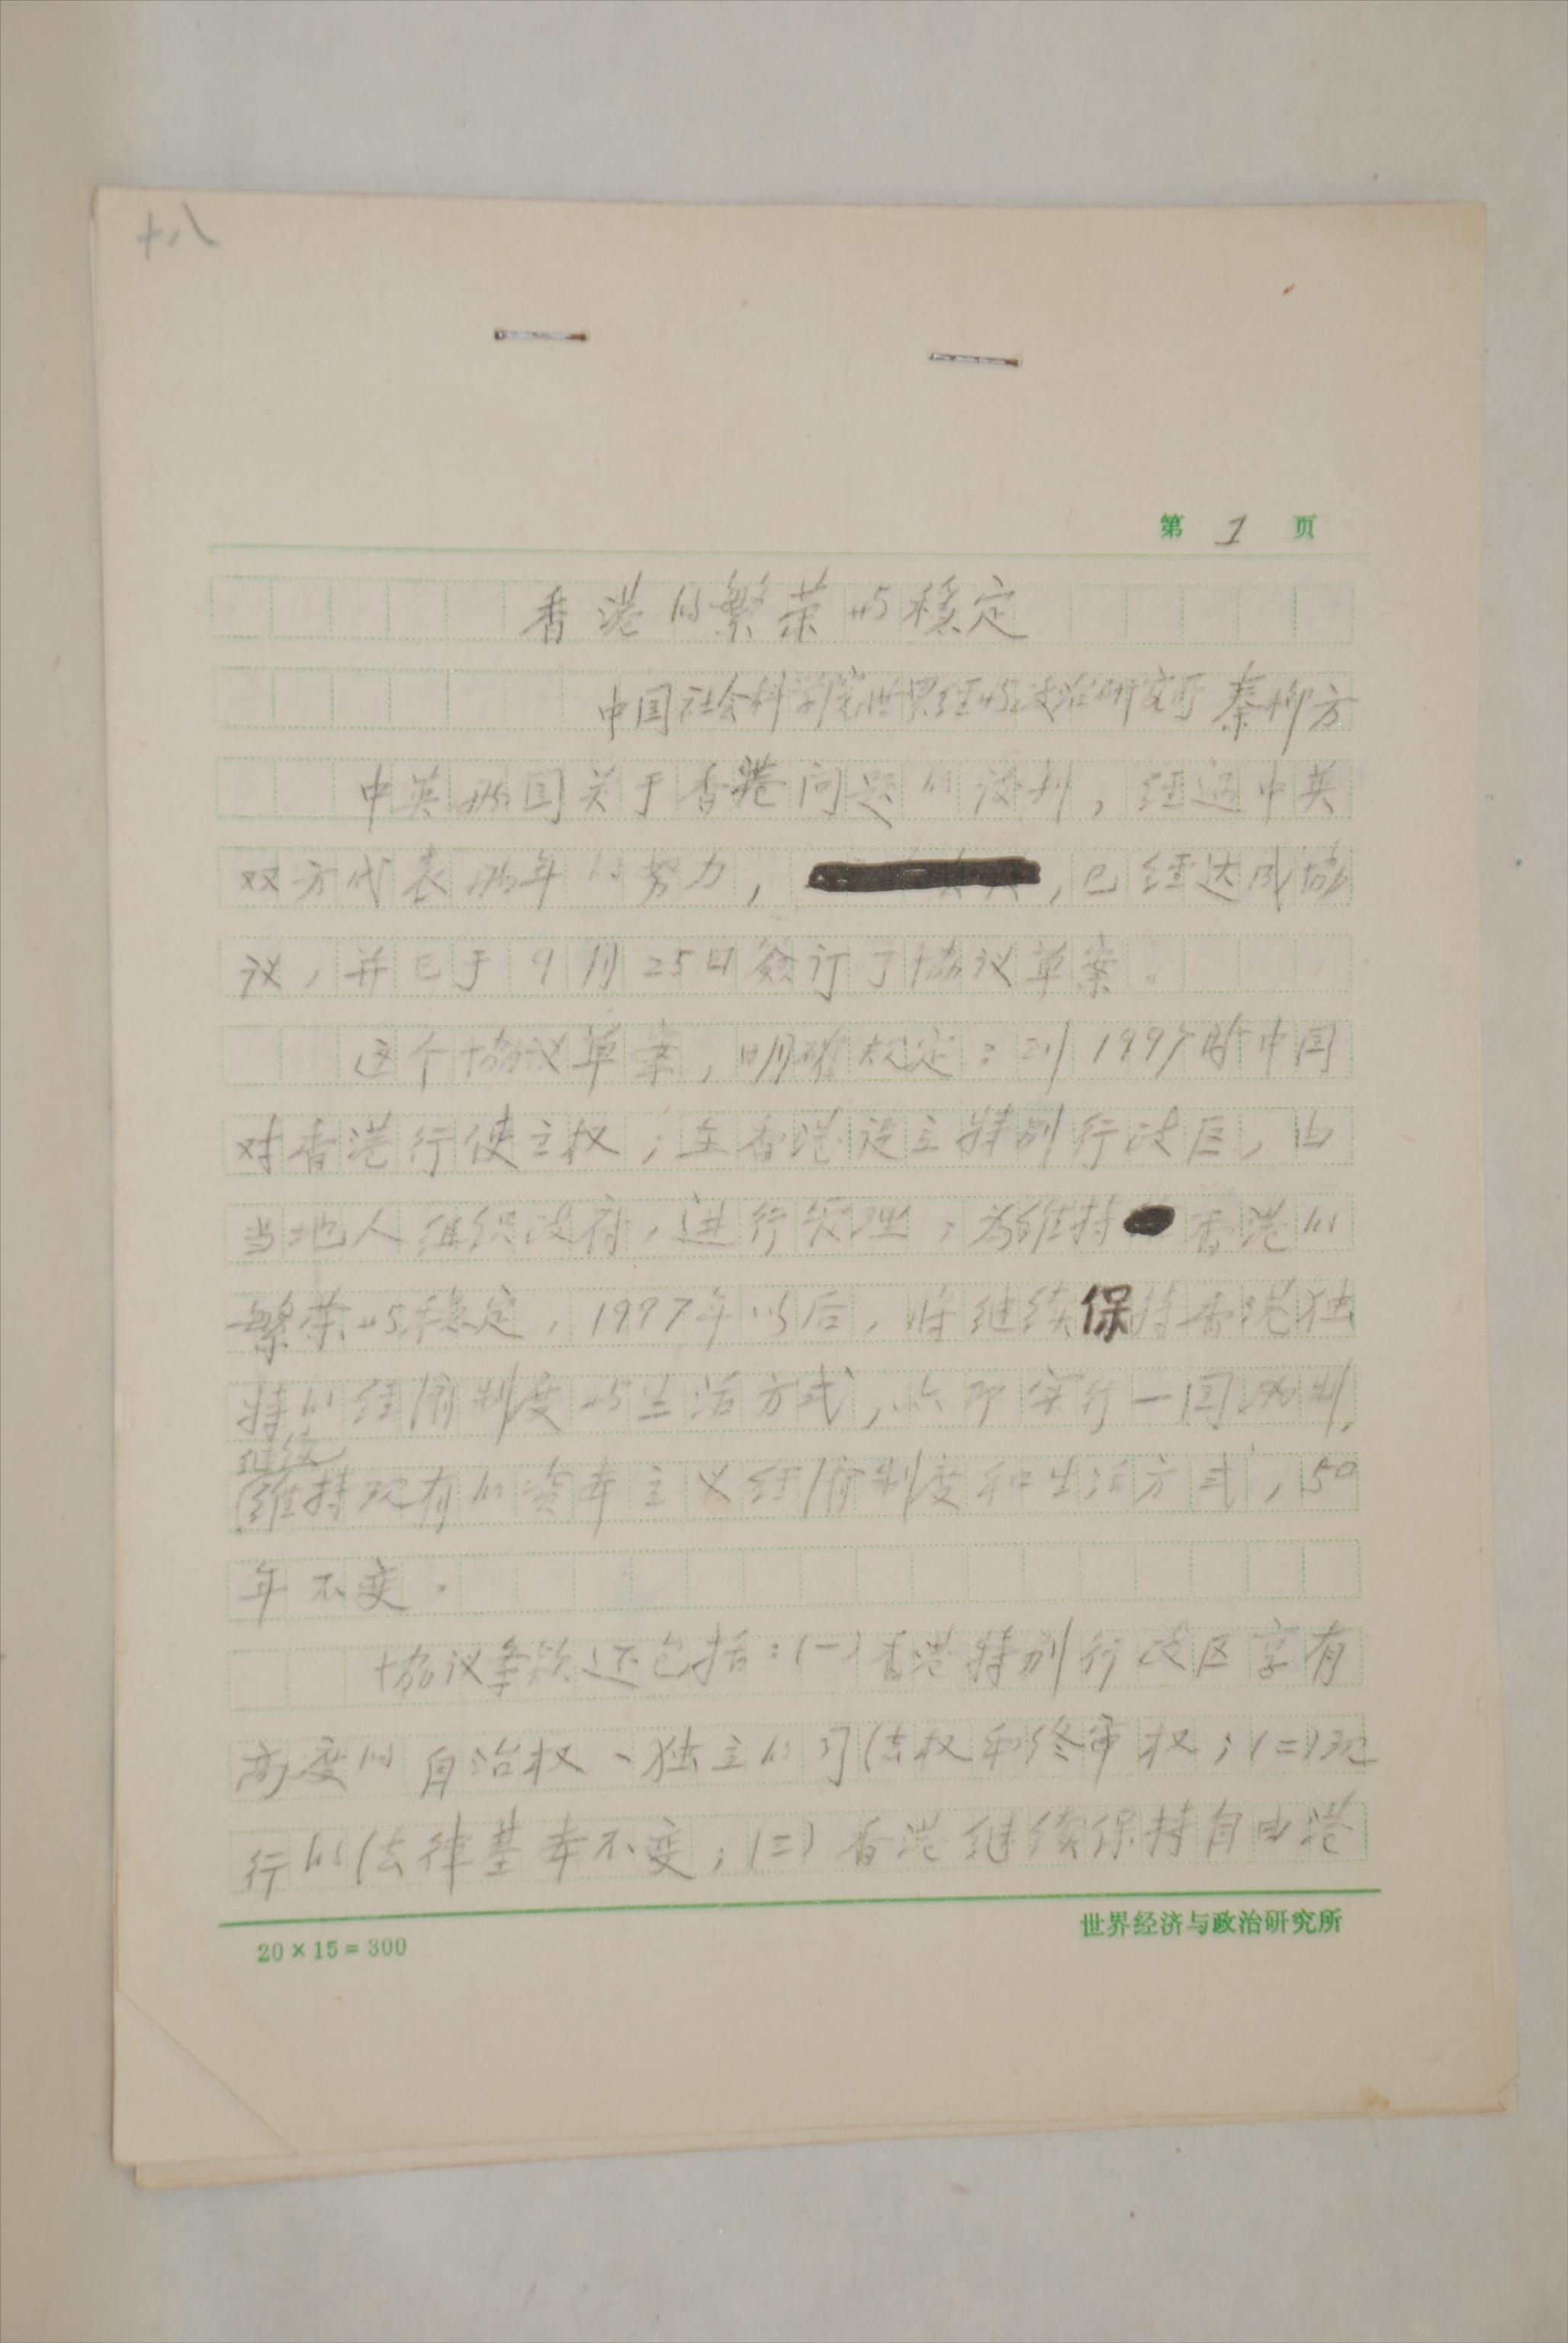 十八
第 1 页
香港的繁荣与稳定
中国社会科学院世界经与政治研究所 秦柳方
中英两国关于香港问题的谈判，经过中英
双方代表两年的努力，，已经达成协
议，并已于9月25日签订了协议草案。
这个协议草案，明确规定：到1997时中国
对香港行使主权；在香港设立特别行政区，由
当地人组织政府，进行管理；为维持香港的
繁荣与稳定，1997年以后，将继续保持香港独
特的经济制度与生活方式，亦即实行一国两制，
继续
维持现有的资本主义经济制度和生活方式，50
年不变。
协议条款还包括：(一)香港特别行政区享有
高度的自治权、独立的司法权和终审权；(二)现
行的法律基本不变；(三)香港继续保持自由港
20×15=300
世界经济与政治研究所